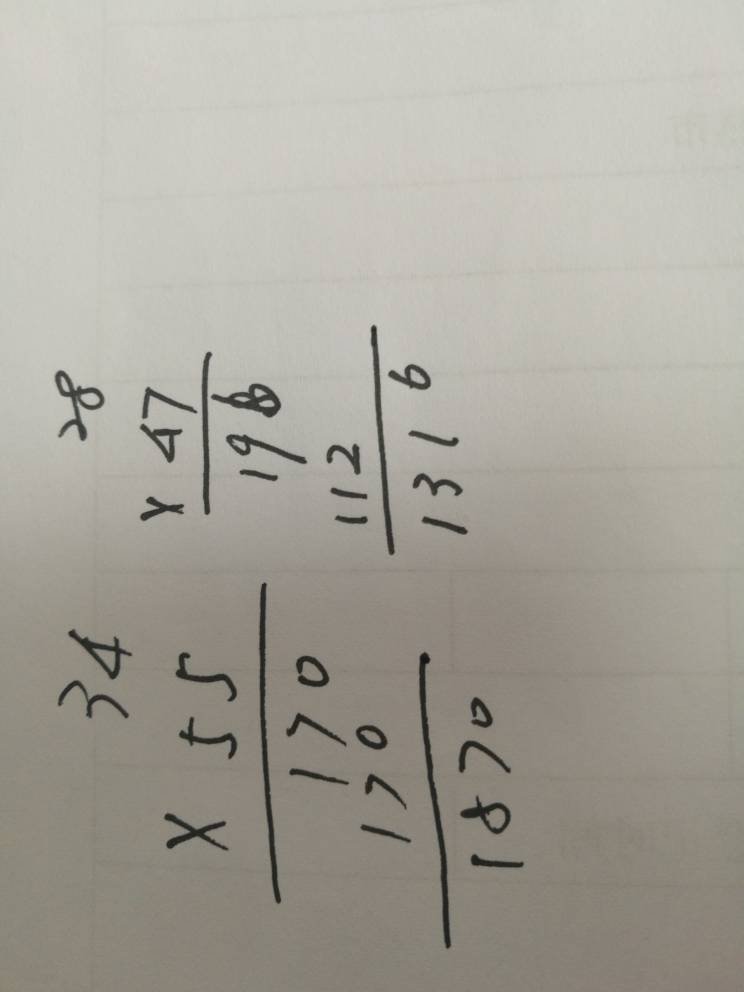 34
× 55
170
170
1870
28
× 47
112
1316